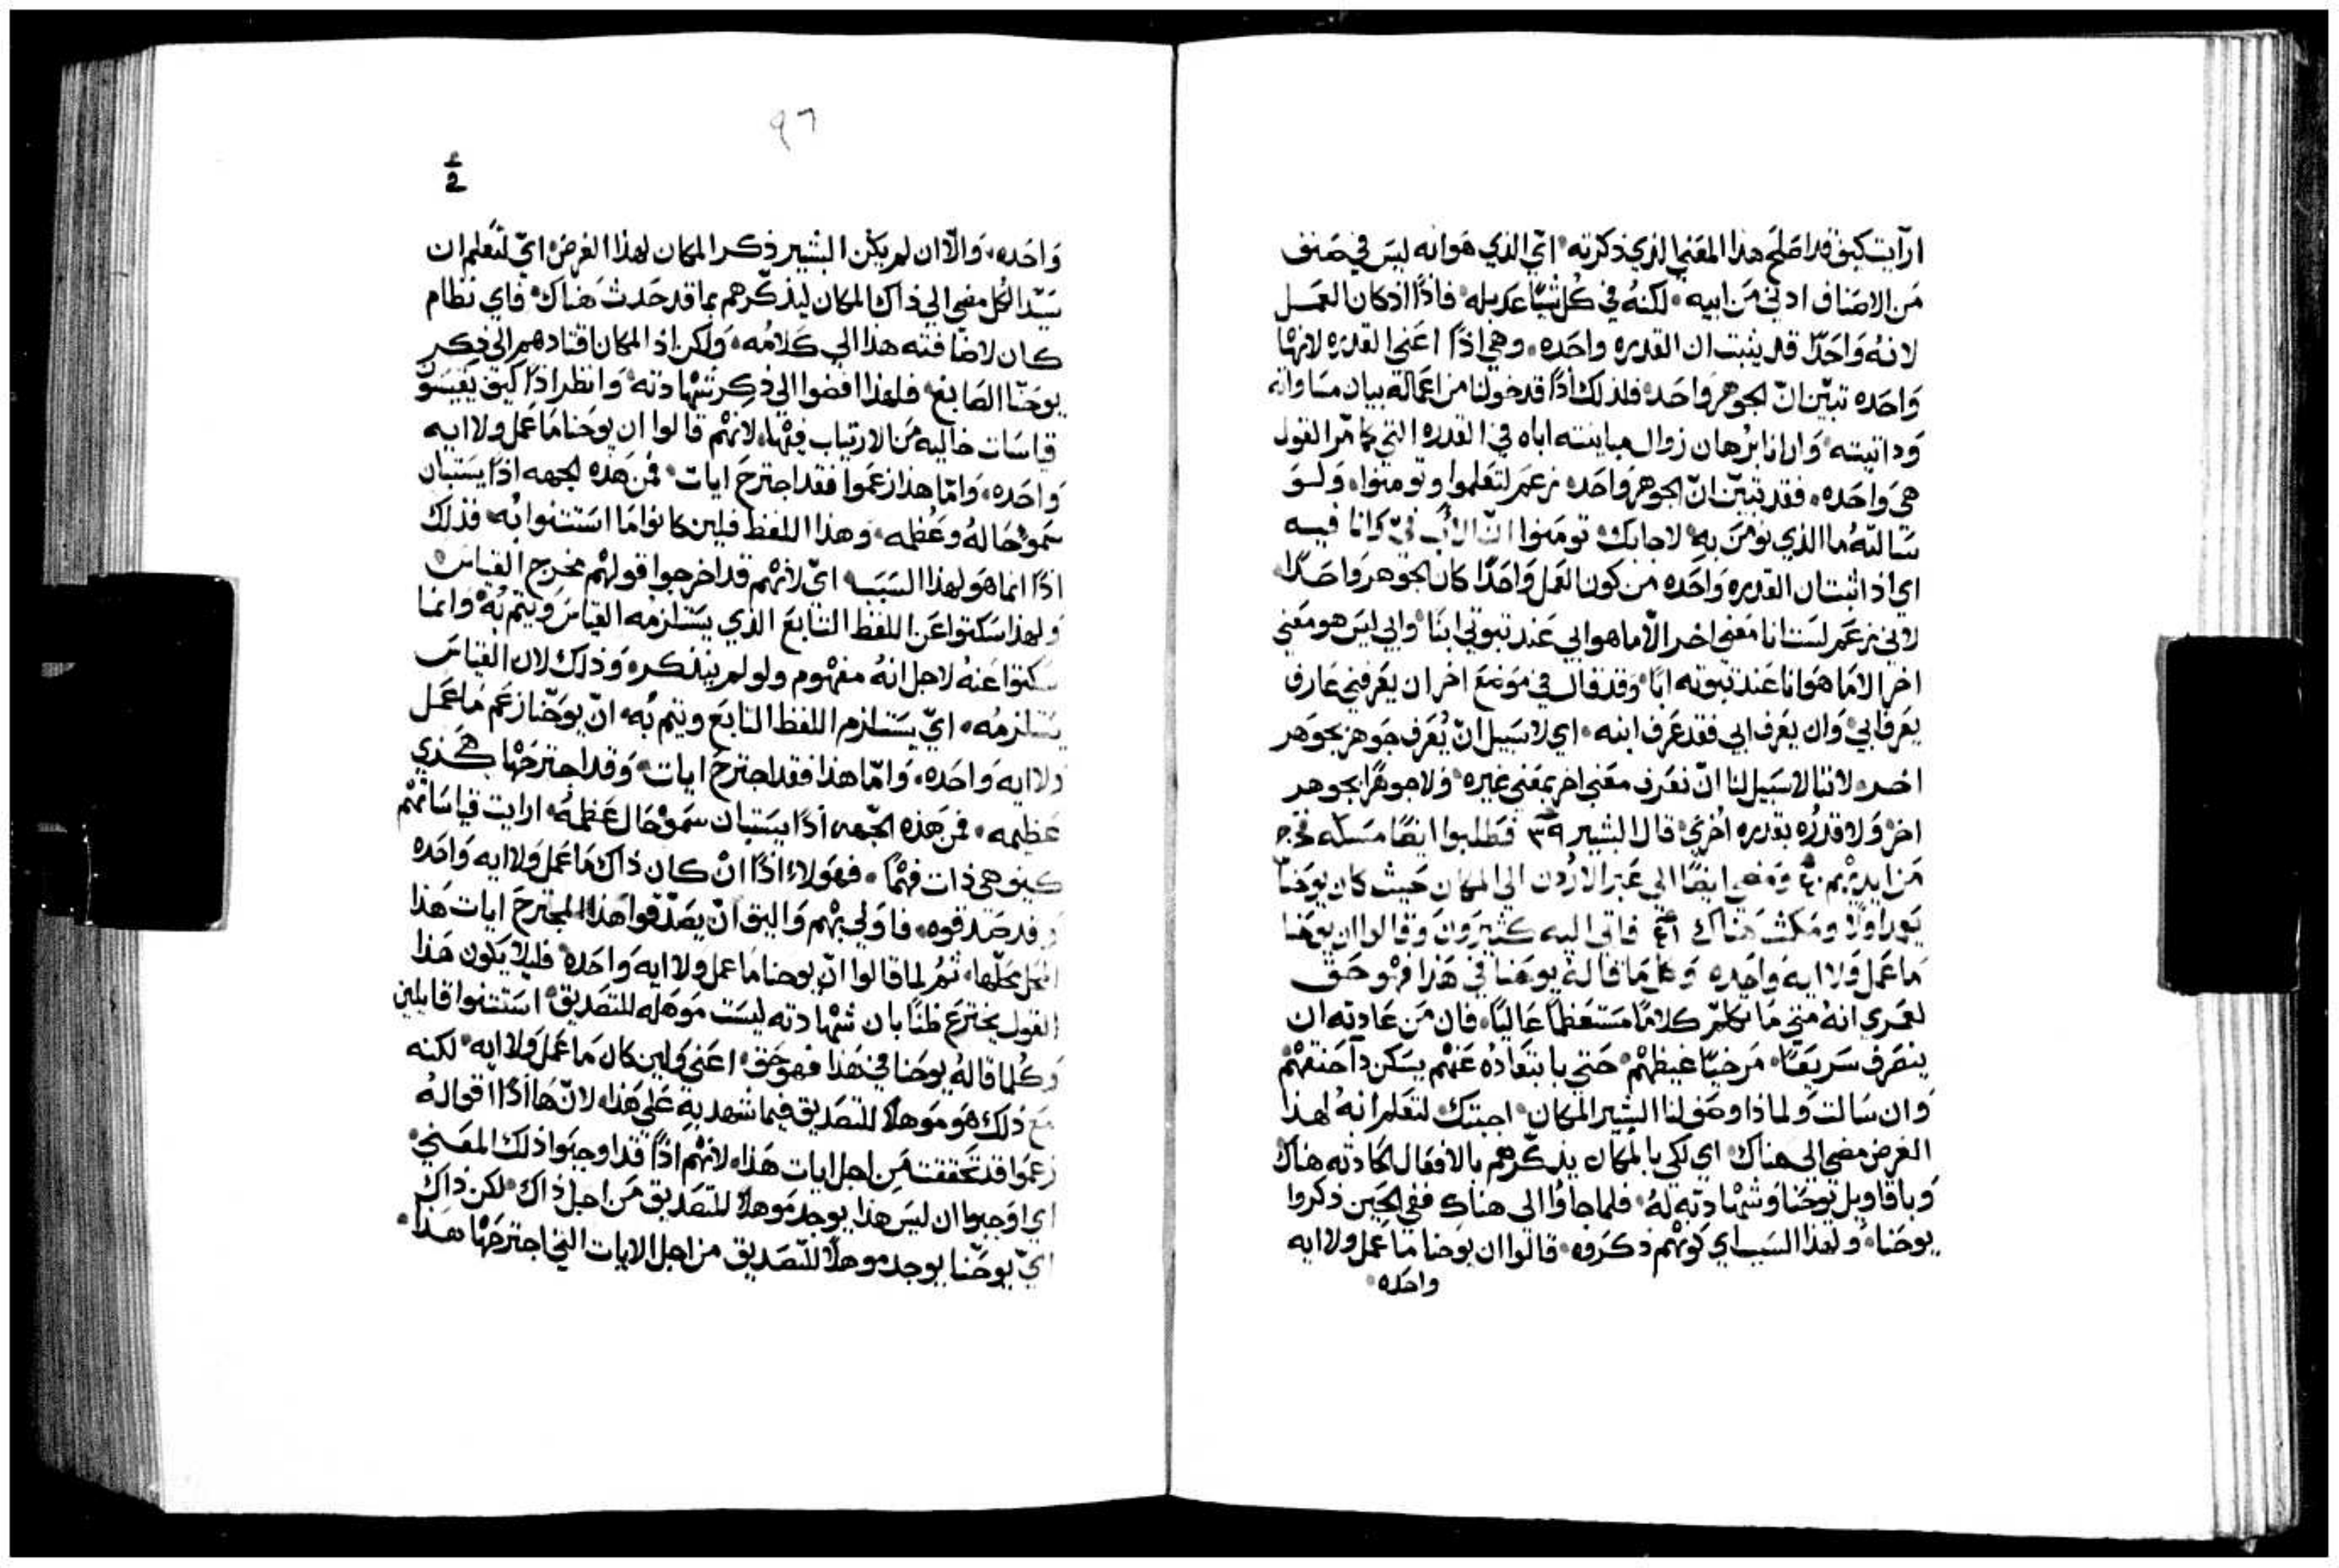 ارآيت كيف قد اصلح هذا المعني الذي ذكرته اي الذي هو انه ليس في صنف
من الاصناف ادني من ابيه لكنه في كل شيًا عديله فاذًا اذ كان العمل
لانهُ وَاحَدًا قد يثبت ان القدره واحَده وهي اذًا اعني القدره لانها
وَاحَده تبيّن انّ الجوهر وَاحَد فلذلك اذًا قد خولنا من اعماله بيان مساواته
وذاتيته وَارانا برُهان زوال مباينته اباه في القدره التي كما مرّ القول
هيَ وَاحَده فقد تبيّن انّ الجوهر وَاحَد زعَم لتعَلموا وتومنوا وَلو
سَالتهُ ما الذي نومَن بهِ لاجابك تومَنوا انّ الاب فيّ وَانا فيه
اي اذ اثبت ان القدره وَاحَده من كون العَمل وَاحَدًا كان الجوهر وَاحَدًا
لاني زعَم لسَت انا مَعني اخر الّا ما هو ابي عَند ثبوتي ابنًا وابي ليسَ هو مَعني
اخر الا مَا هوَ انا عَند ثبوته ابًا وَقد قال في مَوضع اخر ان يعَرفني عَارف
يعَرف ابي وَان يعَرف ابي فقد عَرف ابنه اي لا سَبيل انّ يُعَرف جَوهر بجَوهر
اخر لاننا لا سَبيل لنا انّ نعَرف معَني اخر بمَعني غيره وَلا جوهرًا بجوهر
اخر وَلا قدرُه بقدره اخُري قال البشير ٣٩ فتطلبوا ايضًا مسَكه فخرج
مَن ايديْهم ٤٠ وَمَضي ايضًا الي عَبر الاردُن الي المكان حَيث كان يوحَنا
يعَمد اولًا ومَكث هَناك ٤١ فاتي اليه كثيَرونَ وَقالوا ان يوحَنا
مَا عَمل وَلا ايه وَاحَده وَكل مَا قاله يوحَنا في هَذا فهْو حَق
لعَمري انهُ متي مَا تكلمّ كلامًا مسَتعَظمًا عَاليًا فان مَن عَادته ان
ينصَرف سَريعًا مَرخيًا غيظهْم حَتي بابتعَادهُ عَنهْم يسَكن داحَنقهْم
وَان سَالت وَلماذا وصَف لنا البشير المكان اجبتك لتعَلم انهُ لهذا
الغرض مضي الي هناك اي لكي بالمكان يذكّرهم بالافعَال الحَادثه هناك
وَباقاويل يوحَنا وَشهْادته لهُ فلما جاوُا الى هناك ففي الحَين ذكروا
يوحَنا وَلهذا السَبب اي كونهْم ذكرَوه قالوا ان يوحنا مَا عَمل ولا ايه
واحَده
٩٦
وَاحَده وَالّا ان لم يكَن البشير ذكر المكان لهذا الغرضَ ايّ لتعَلم ان
سَيّد الكُل مضي الي ذاك المكان ليذكّرهم بما قد حَدث هَناك فاي نظام
كان لاضافته هذا الي كَلامُه وَلكن اذ المكان اقتادهم الي ذكر
يوحَنّا الصَابغ فلهذا افضوا الى ذكر شهْادته وَانظر اذًا كيف يقيسَون
قياسَات خاليه مَن الارتياب فيهْا لانهْم قالوا ان يوحَنا مَا عَمل ولا ايه
وَاحَده وَامّا هذا زعَموا فقد اجترحَ ايات فمَن هَذه الجهه اذًا يسَتبان
سَموّ حَالهُ وعُظمه وَهذا اللفظ فلين كانوا مَا اسَتثنوا بهُ فذلك
اذًا انما هوَ لهذا السَبَب ايّ لانهْم قد اخرجوا قولهْم مخرج القياس
وَلهذا سَكتوا عَن اللفظ التابعَ الذي يسَتلزمُه القياسَ وَيتم بُه وَانما
سَكتوا عَنهُ لاجل انهُ مفهْوم ولو لم يُذكره وَذلك لان القياسَ
يسَتلزمُه ايّ يسَتلزم اللفظ التابعَ ويتم بُه انّ يوحَنا زعَم مَا عَمل
ولا ايه وَاحَده وَامّا هذا فقد اجترحَ ايات وَقد اجترحَهْا هَكذي
عَظيمه فمن هَذه الجّهه اذًا يسَتبان سَموّ حَال عَظمهُ ارايت قياسَاتهْم
كيف هي ذات فهْمًا فهَولاء اذًا انْ كان ذاك مَا عَمل وَلا ايه وَاحَده
وَقد صَدقوه فاوَلي بهْم وَاليق انّ يصَدّقوا هَذا المجترحَ ايات هَذا
المحل محَلّها ثمُ لما قالوا انّ يوحنا مَا عمل ولا ايه وَاحَده فليلا يَكون هَذا
القول يخترَع ظنًا بان شهْادته ليسَت مَوهَله للتصَديق اسَتثنوا قايلين
وَكُلما قالهُ يوحَنا في هَذا فهو حَق اعَني وَلين كان مَا عَمل وَلا ايه لكنه
معَ ذلك هوَ مَوهلًا للتصَديق فيما شهد بهِ عَلي هَذا لانّ هَا اذًا اقوالهُ
زعَموا قد تحَققت مَن اجل ايات هَذا لانهْم اذًا قد اوجبَوا ذلك المعَني
اي اوَجبوا ان ليسَ هذا يوجَد مَوهلًا للتصَديق مَن اجل ذاك لكن ذاك
ايّ يوحَنّا يوجد موهلًا للتصَديق من اجل الايات التي اجترحَهْا هَذا